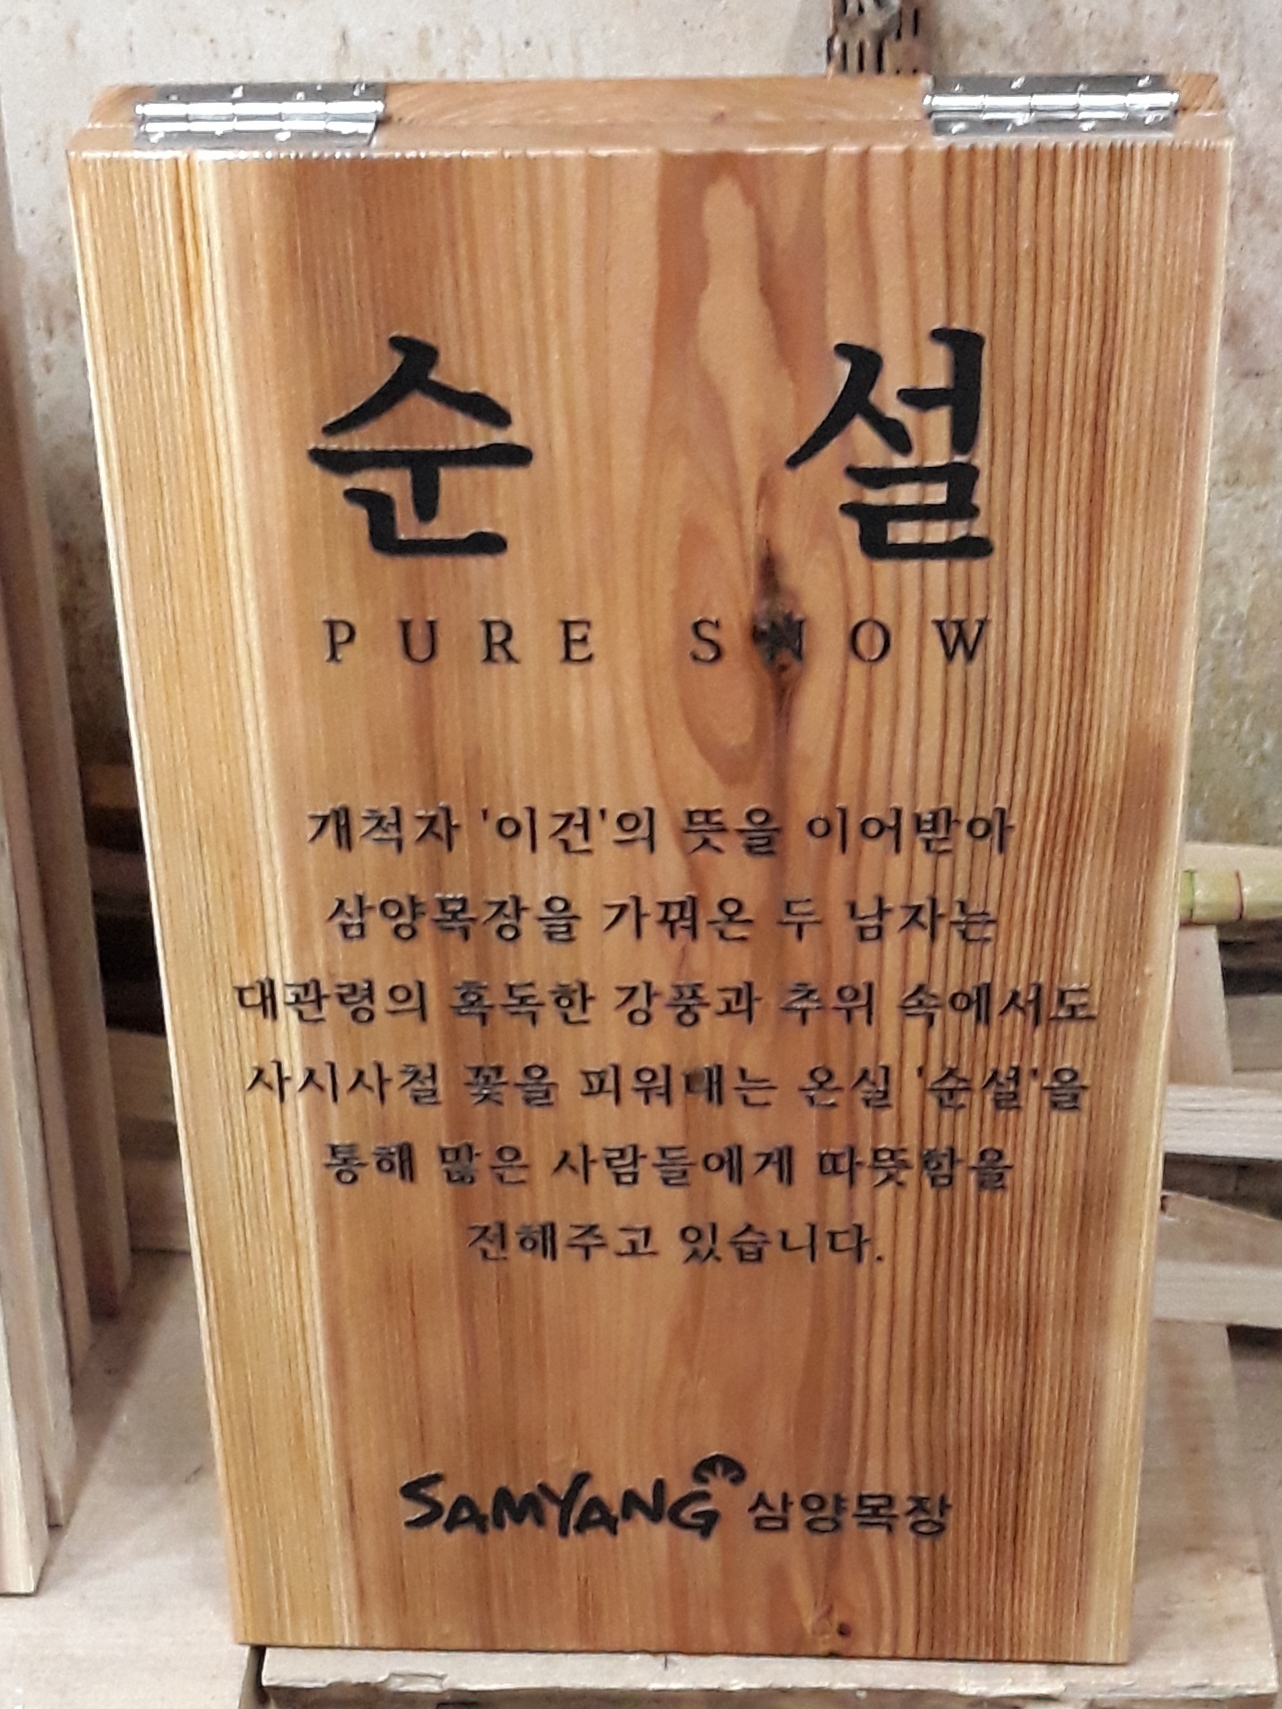 순 설
PURE SNOW
개척자 '이건'의 뜻을 이어받아
삼양목장을 가꿔온 두 남자는
대관령의 혹독한 강풍과 추위 속에서도
사시사철 꽃을 피워내는 온실 '순설'을
통해 많은 사람들에게 따뜻함을
전해주고 있습니다.
SAMYANG 삼양목장